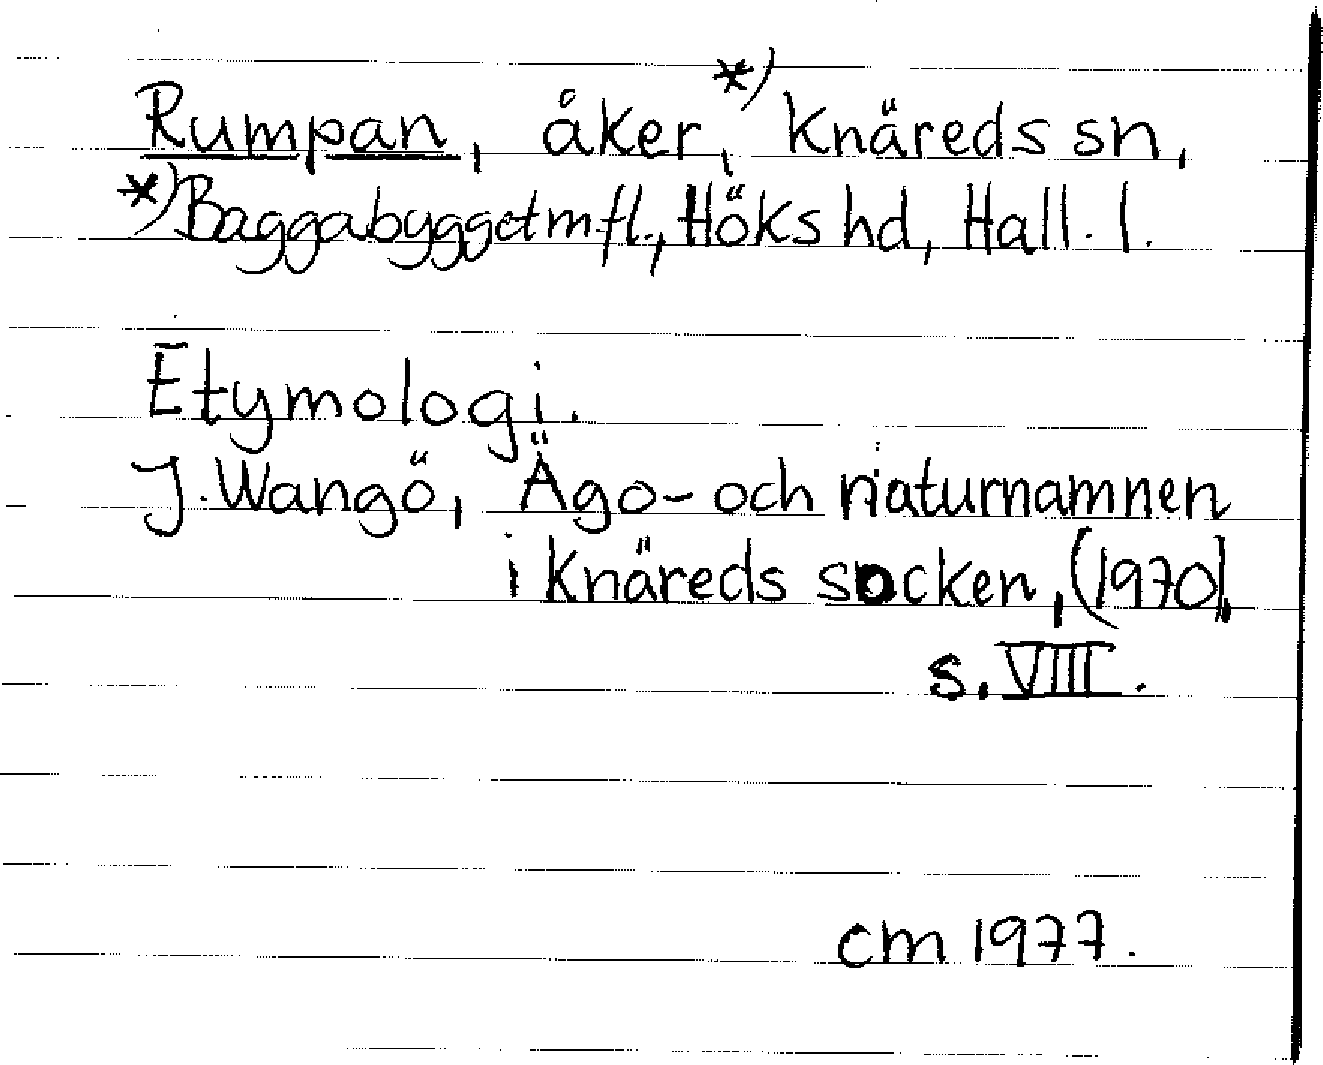 Rumpan, åker, *) Knäreds sn,
*) Baggabygget m fl., Höks hd, Hall. l.
Etymologi.
J. Wangö, Ägo- och naturnamnen
i Knäreds socken, (1970),
s. VIII.
cm 1977.